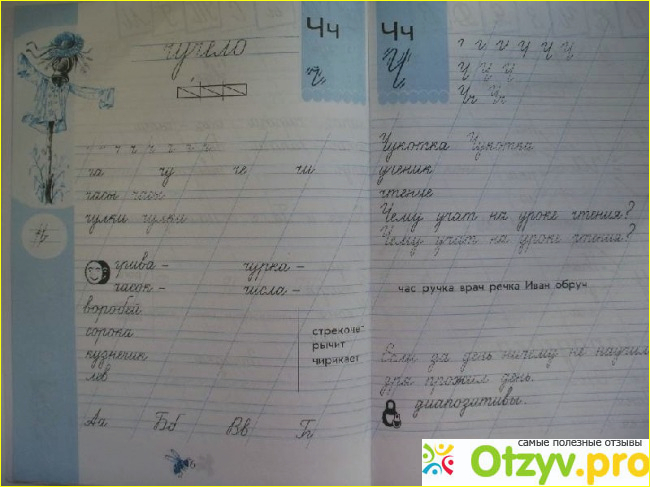 чучело
Чч
ч
ча чу че чи
часы часы
чулки чулки
грива – чурка –
часок – числа –
воробей
сорока
кузнечик
лев
стрекоче-
рычит
чирикает
Аа Бб Вв Гг
Чч
Ч
Чукотка Чукотка
ученик
чтение
Чему учат на уроке чтения?
Чему учат на уроке чтения?
час ручка врач речка Иван обруч
Если за день ничему не научил
зря прожил день.
диапозитивы.
самые полезные отзывы
Otzyv.pro